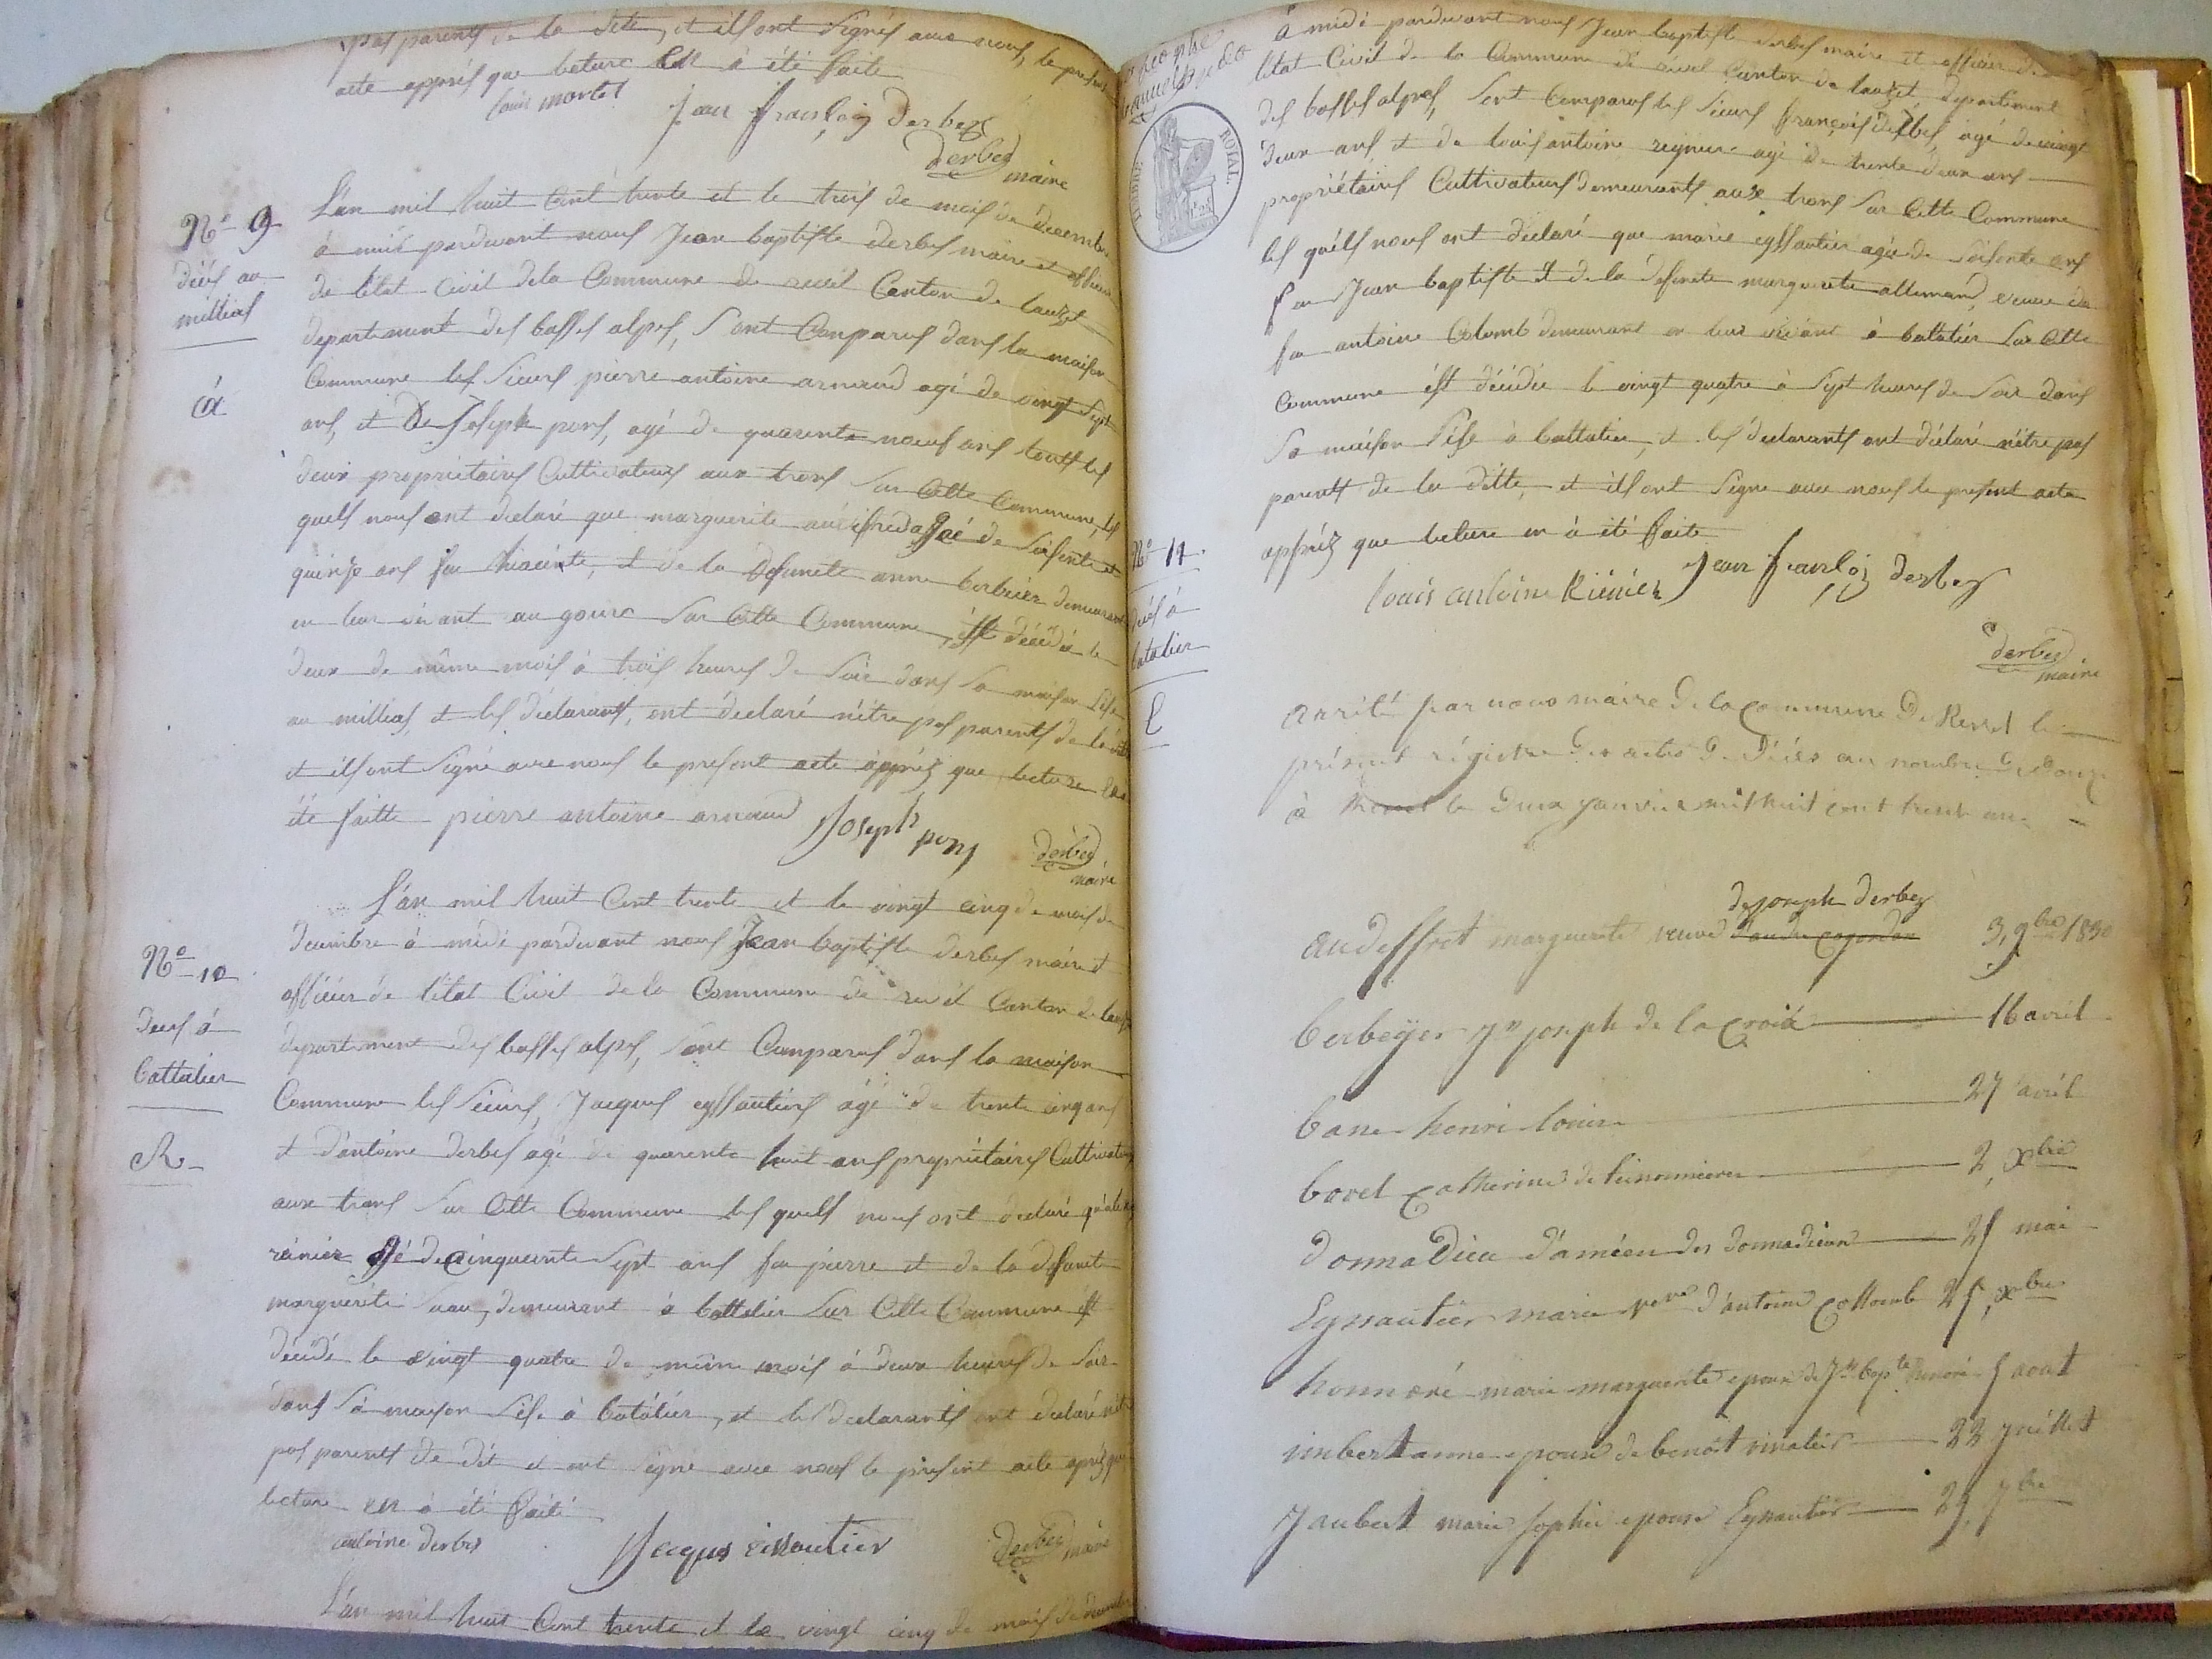 pas parents de la dite, et ils ont signés avec nous, le present
acte apprés que lecture en à été faite
louis mortel Jean François Derbez
derbes maire
N° 9
décés au
millias
L'an mil huit cent trente et le trois de mois de décembre
à midi pardevant nous Jean baptiste derbes maire et officier
de l'état civil dela Commune de revel Canton de lauzet
departement des basses alpes, sont Comparus dans la maison
Commune les sieurs pierre antoine arnaud agé de vingt sept
ans, et De Joseph pons, agé de quarente neuf ans touts les
deux propriétaires Cultivateurs aux trons sur Cette Commune, les
quels nous ont declaré que marguerite agé de soisente et
quinze ans fu hiacinte, et de la defunete anne berbeier demeurant
en leur vivant au gourc sur Cette Commune, est décédée le
deux de même mois à trois heures de soir dans sa maison sise
au millias, et les déclarants, ont déclaré n'être pas parents de la dite
et ils ont signé avec nous le present acte apprés que lecture en à
été faitte pierre antoine arnaud Joseph pons
derbes maire
N° 10
deces à
battalier
R
L'an mil huit Cent trente et le vingt cinq de mois de
decembre à midi pardevant nous Jean baptiste derbes maire et
officier de l'état Civil de la Commune de revel Canton de lauzet
departement des basses alpes, sont Comparus dans la maison
Commune les sieurs, Jacques eyssautier agé de trente cinq ans
et d'antoine derbes agé de quarente huit ans propriétaires Cultivateurs
aux trons sur Cette Commune les quels nous ont declaré
reinier agé de cinquente sept ans fu pierre et de la defunete
marguerite suau, demeurant à battalier sur Cette Commune est
décédé le vingt quatre de même mois à deux heures de soir
dans sa maison sise à batalier, et les declarants ont declaré n'être
pas parents de dit et ont signé avec nous le present acte aprés que
lecture en à été faite
antoine derbes Jacques eissautier derbes maire
L'an mil huit Cent trente et le vingt cinq de mois de decembre
à midi pardevant nous Jean baptiste derbes maire et officier de
létat Civil de la Commune de revel Canton de lauzet, departement
des basses alpes, sont Comparus les sieurs françois derbes, agé de vingt
deux ans et de louis antoine reynier agé de trente deux ans
propriétaires Cultivateurs demeurants aux trons sur Cette Commune
les quéls nous ont déclaré que marie eyssautier agée de soisente ans
fu Jean baptiste et de la defunete marguerite allemand, veuve de
fu antoine Colomb demeurant en leur vivant à battalier sur Cette
Commune ést décédée le vingt quatre à sept heures de soir dans
sa maison sise à battalier, et les declarants ont déclaré n'être pas
parents de la ditte, et ils ont signe avec nous le present acte
apprés que lecture en à été faite
TIMBRE ROYAL
N° 11
décés à
batalier
louis antoine Riénier Jean françois derbez
derbes maire
arrêté par nous maire De la Commune De Revel le
présent régistre Des actes De Décès au nombre De onze
à Revel le Deux janvier mil huit cent trente un
de joseph derbez
audeffret marguerite veuve 3, 9bre 1830
berbeÿer jn joseph de la croix 16 avril
bane henri louis 27 avril
borel catherine de 2, xbre
donnadieu d'améeu des donnadieux 25 mai
Eyssautier marie veuve d'antoine Collomb 25, xbre
honnoré marie marguerite epouse de Jn bapte 5 aout
imbert anne epouse de benoît 22 juillet
Jaubert marie sophie epouse Eyssautier 29, 7bre